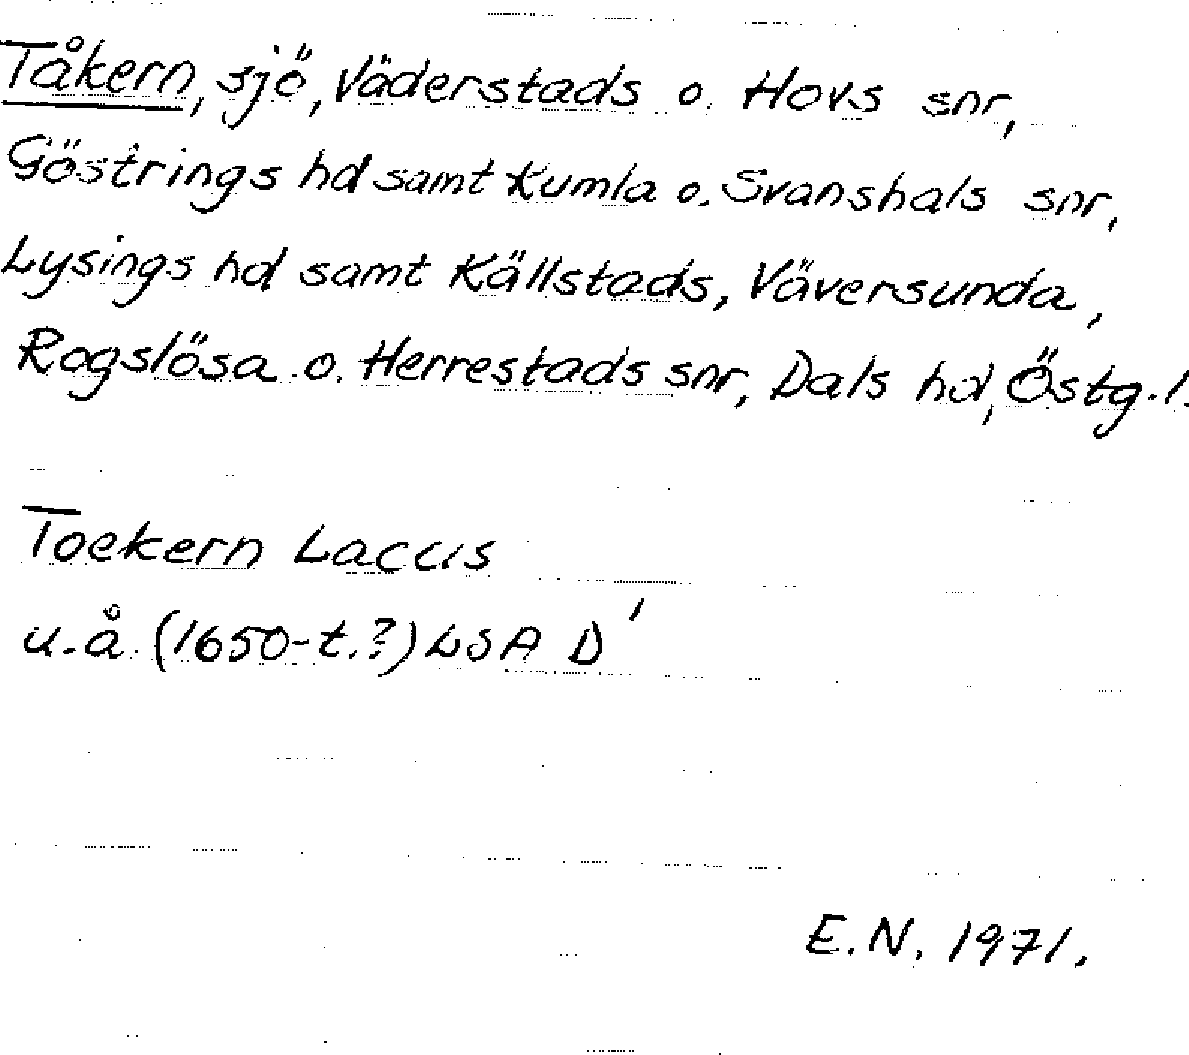 Tåkern, sjö, Väderstads o. Hovs snr,
Göstrings hd samt Kumla o. Svanshals snr,
Lysings hd samt Källstads, Väversunda,
Rogslösa o. Herrestads snr, Dals hd, Östg.l.
Toekern Lacus
u.å. (1650-t.?) LSA D'
E.N. 1971.